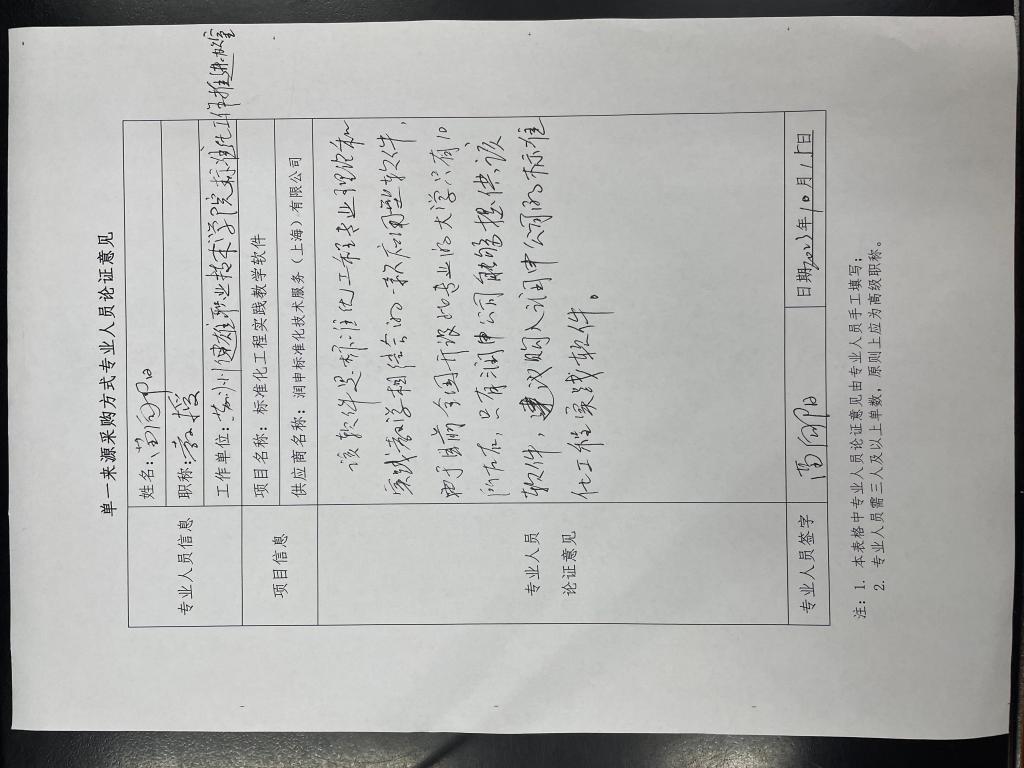 单一来源采购方式专业人员论证意见
专业人员信息
姓名：苗
职称：教授
工作单位：苏州健雄职业技术学院标准化工作推进办公室
项目信息
项目名称：标准化工程实践教学软件
供应商名称：润申标准化技术服务（上海）有限公司
专业人员
论证意见
该软件是标准化工程专业理论和
实践教学相结合的一款应用型软件，
由于目前全国开设此专业的大学只有10
所左右，只有润申公司能够提供该
软件，建议购入润申公司的标准
化工程实践软件。
专业人员签字
苗
日期2021年10月15日
注：1. 本表格中专业人员论证意见由专业人员手工填写；
2. 专业人员需三人及以上单数，原则上应为高级职称。